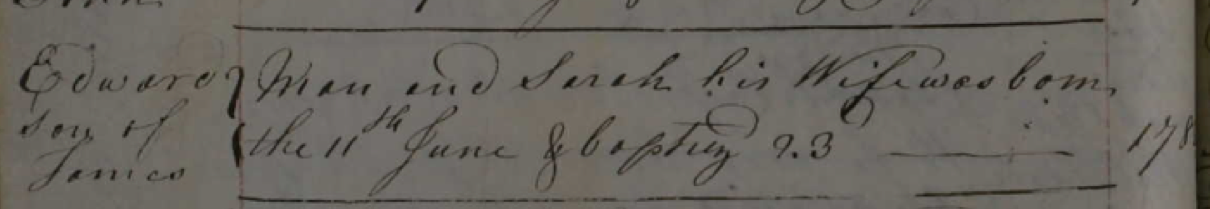 Edward
son of
James
Man and Sarah his Wife was born
the 11th June & baptiz'd 23
178